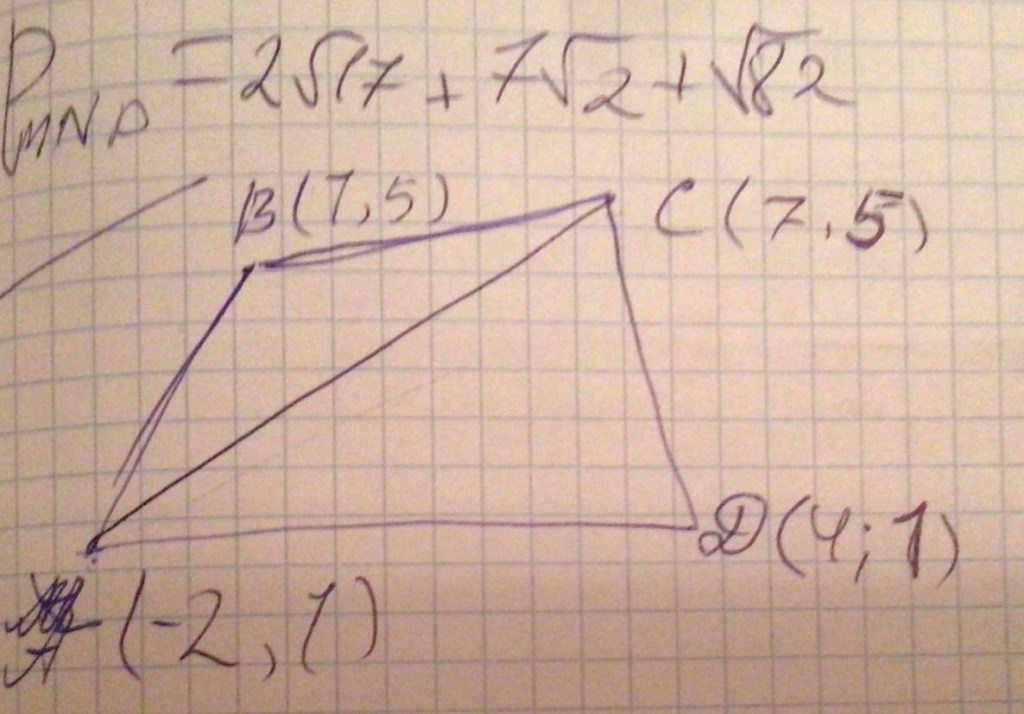 P_MNP = 2√17 + 7√2 + √82
B(7,5) C(7.5)
D(4;1)
A (-2,1)